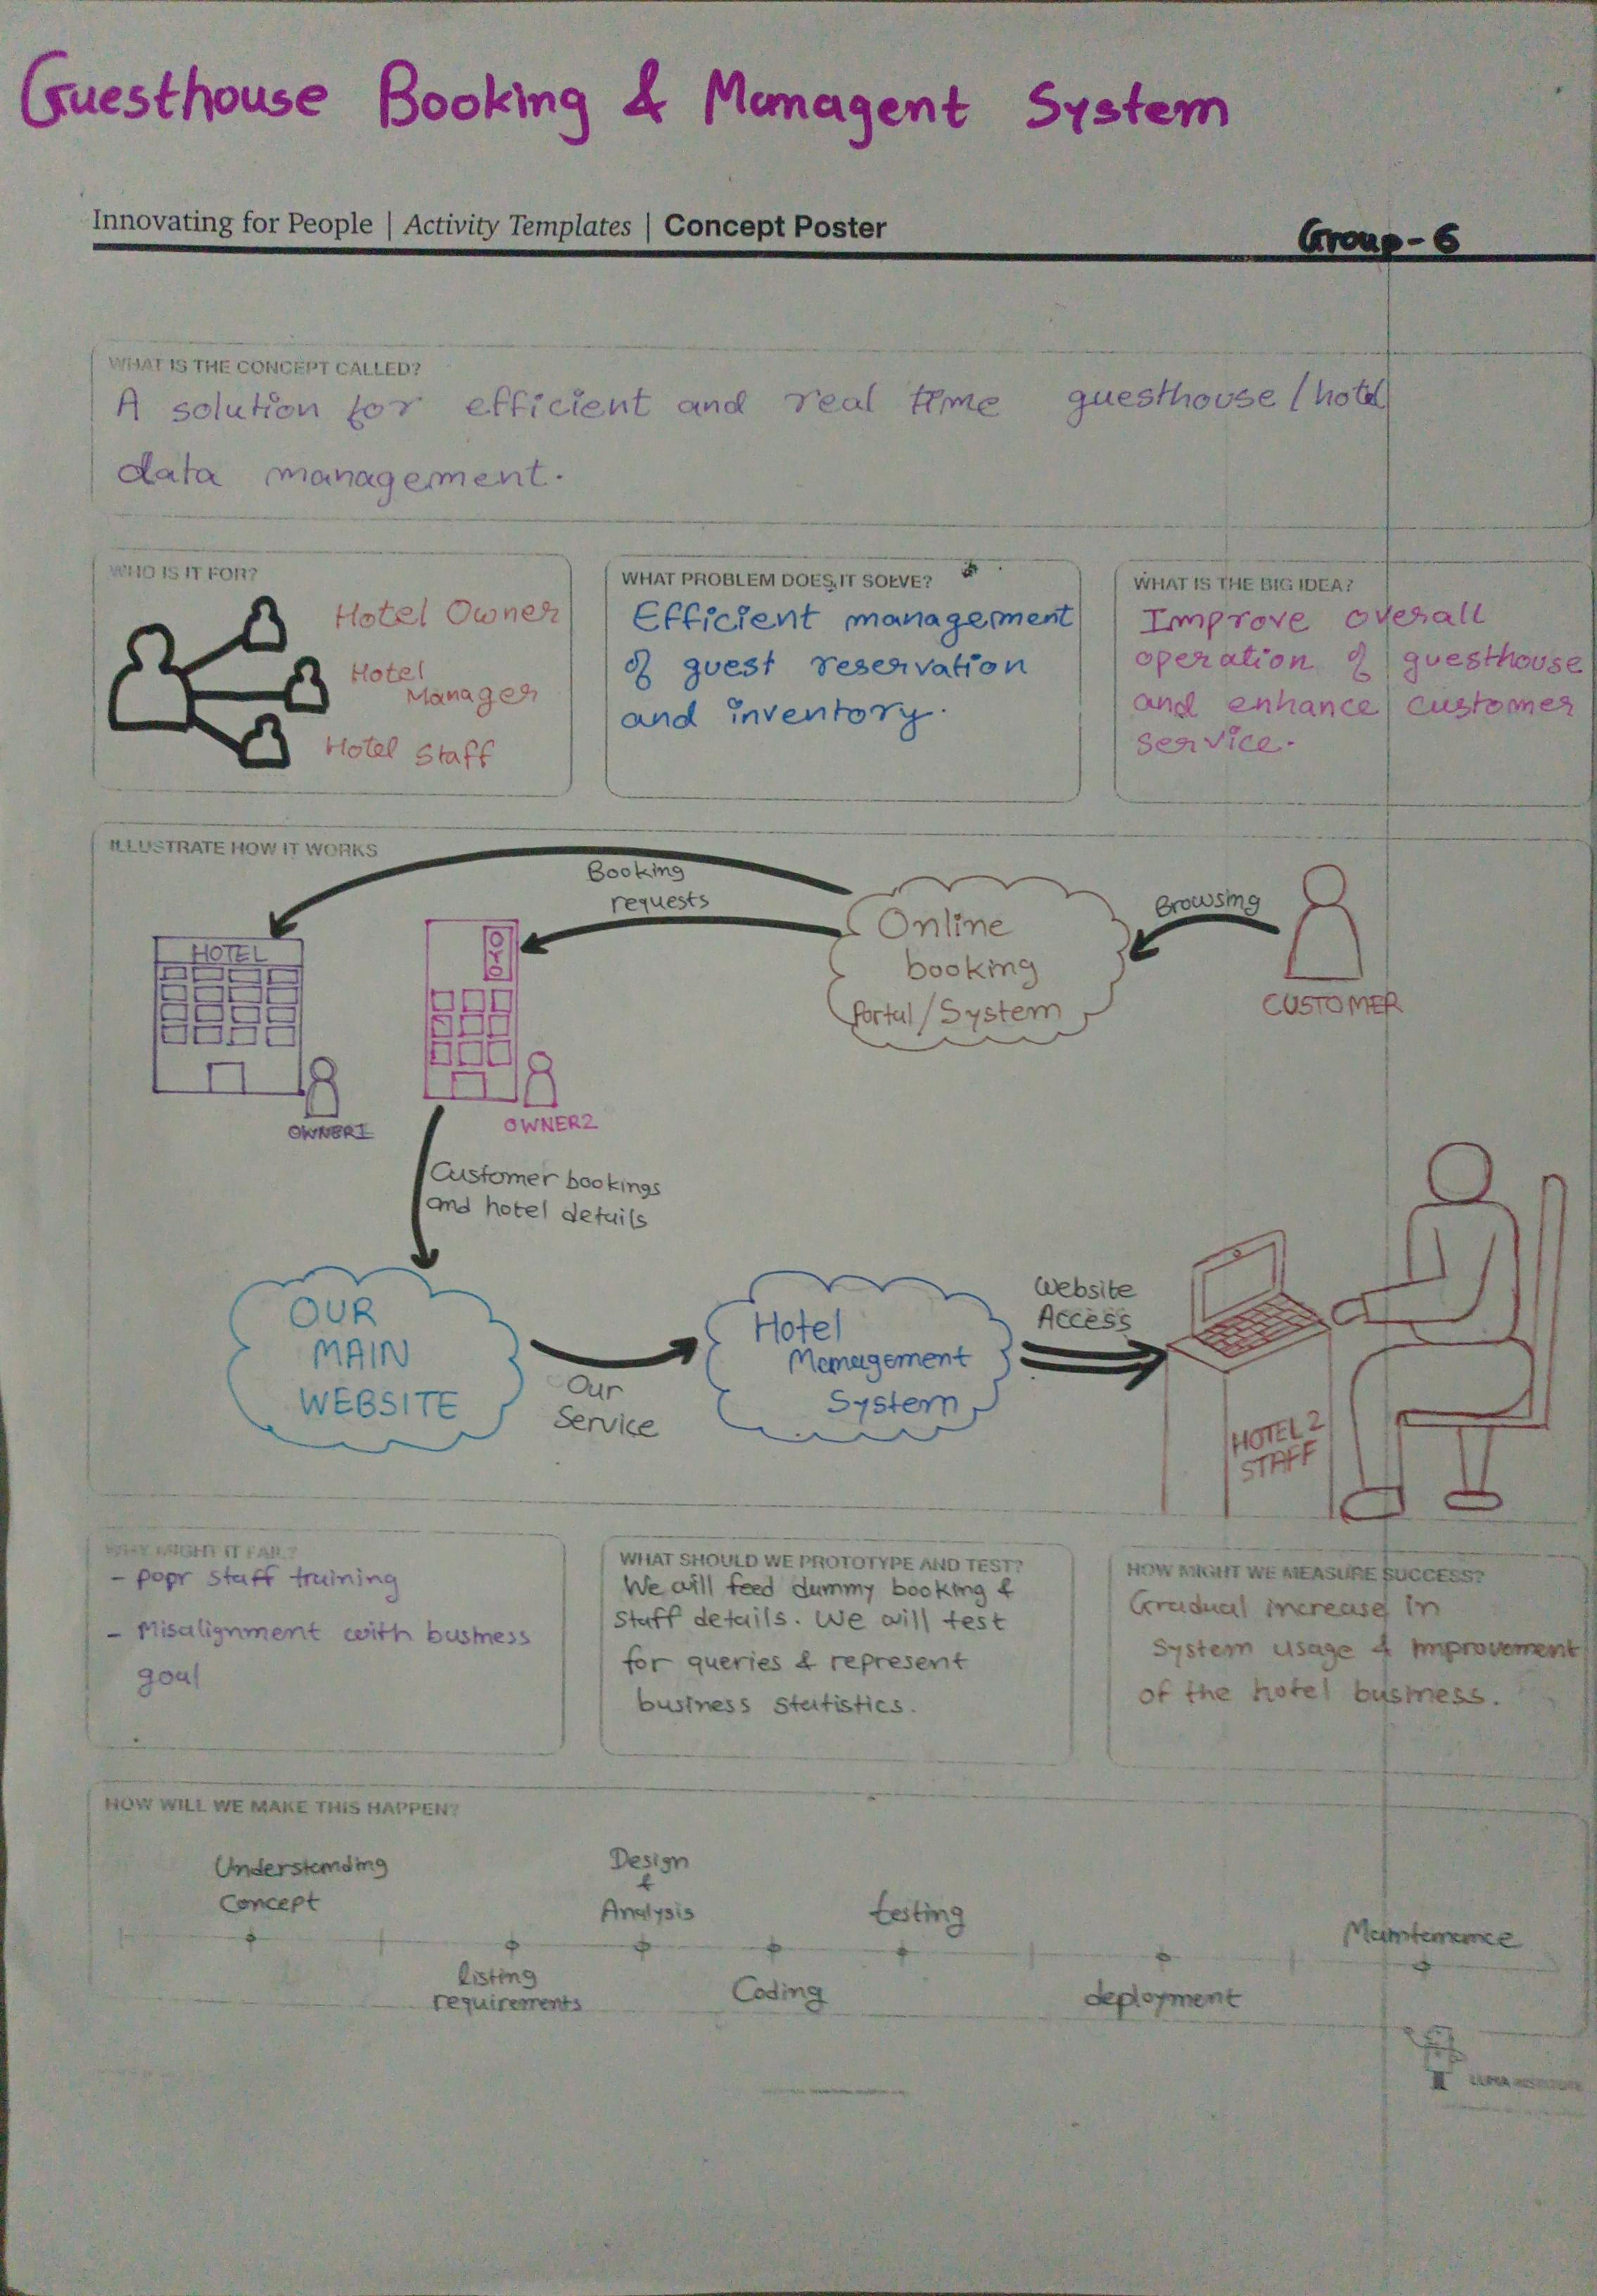 Guesthouse Booking & Managent System
Innovating for People | Activity Templates | Concept Poster
Group-6
WHAT IS THE CONCEPT CALLED?
A solution for efficient and real time guesthouse/hotel
data management.
WHO IS IT FOR?
Hotel Owner
Hotel
Manager
Hotel Staff
WHAT PROBLEM DOES IT SOLVE?
Efficient management
of guest reservation
and inventory.
WHAT IS THE BIG IDEA?
Improve overall
operation of guesthouse
and enhance customer
service.
ILLUSTRATE HOW IT WORKS
Booking
requests
Online
booking
Portal/System
Browsing
CUSTOMER
HOTEL
OYO
OWNER1
OWNER2
Customer bookings
and hotel details
OUR
MAIN
WEBSITE
Our
Service
Hotel
Management
System
Website
Access
HOTEL 2
STAFF
WHY MIGHT IT FAIL?
- poor staff training
- Misalignment with business
goal
WHAT SHOULD WE PROTOTYPE AND TEST?
We will feed dummy booking &
staff details. We will test
for queries & represent
business statistics.
HOW MIGHT WE MEASURE SUCCESS?
Gradual increase in
system usage & improvement
of the hotel business.
HOW WILL WE MAKE THIS HAPPEN?
Understanding
Concept
listing
requirements
Design
&
Analysis
Coding
testing
deployment
Maintenance
LUMA INSTITUTE